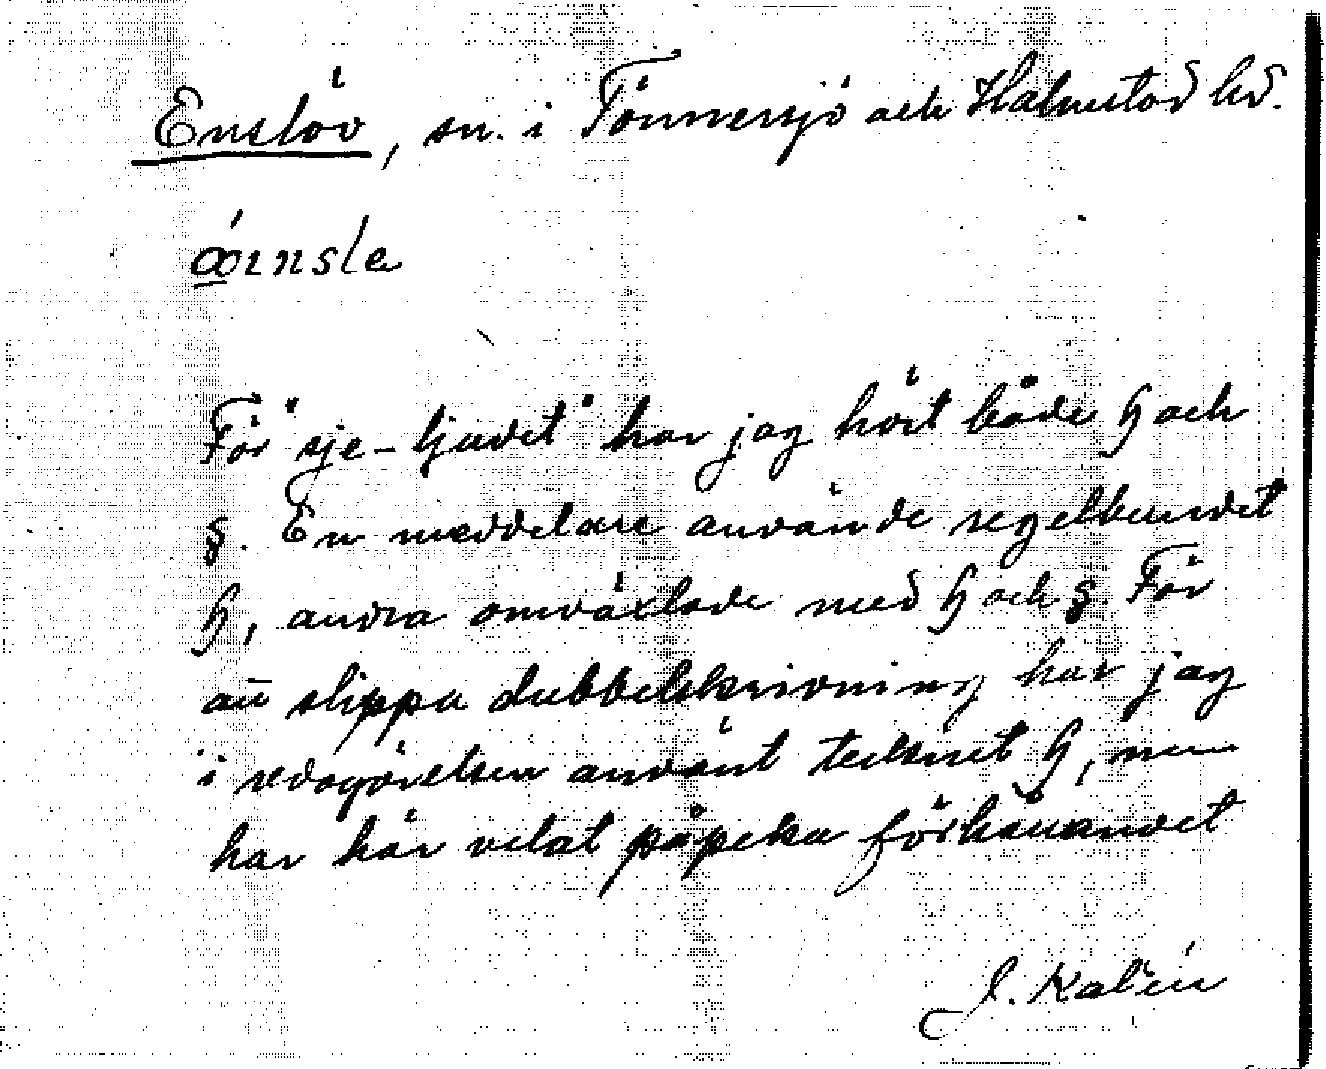 Enslöv, sn. i Tönnersjö och Halmstad hd.
œ́ɪnsle
För "sje-ljudet" har jag hört både ɧ och
ʂ. En meddelare använde regelbundet
ɧ, andra omväxlade med ɧ och ʂ. För
att slippa dubbelskrivning har jag
i redogörelsen använt tecknet ɧ, men
har här velat påpeka förhållandet
J. Kalén